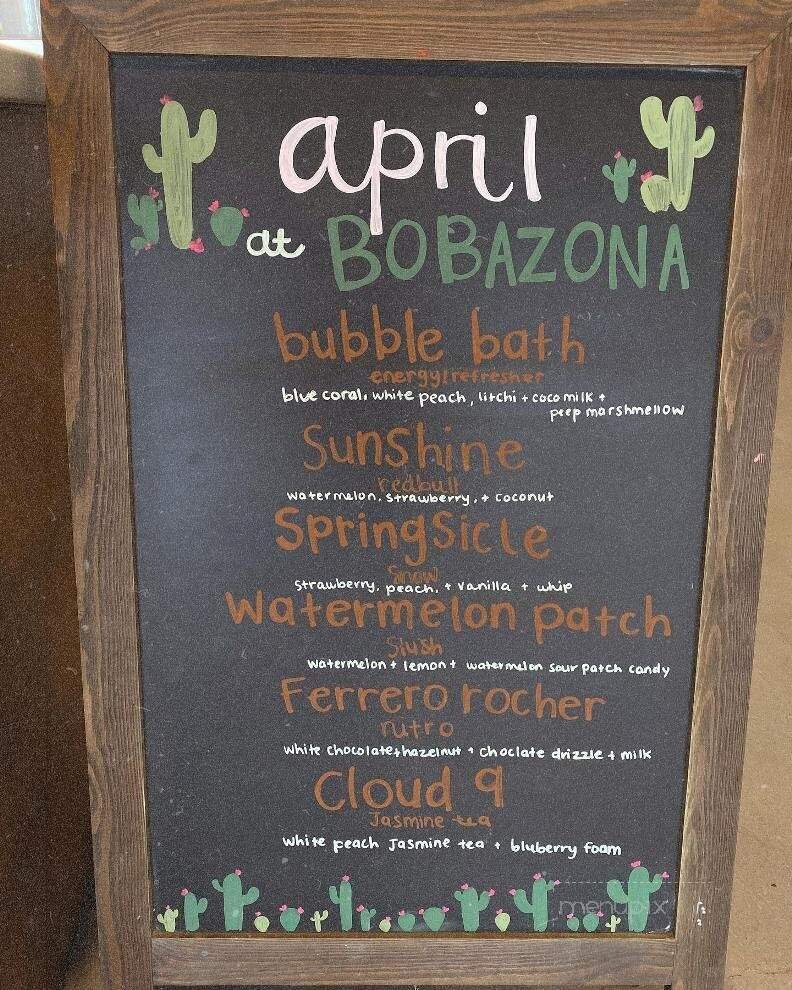 april
at BOBAZONA
bubble bath
energy/refresher
blue coral, white peach, litchi + coco milk +
peep marshmellow
Sunshine
redbull
watermelon, strawberry, + coconut
Springsicle
Snow
Strawberry, peach, + vanilla + whip
Watermelon patch
Slush
watermelon + lemon + watermelon sour patch candy
Ferrero rocher
nitro
white chocolate + hazelnut + choclate drizzle + milk
Cloud 9
Jasmine tea
white peach Jasmine tea + bluberry foam
menupix